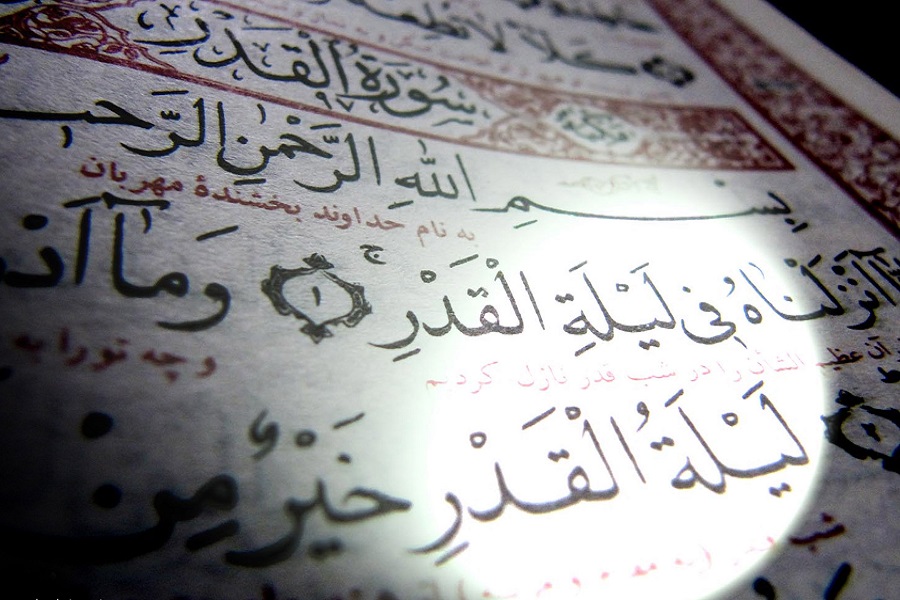 كَلَّا لَا تُطِعْهُ
سُورَةُ الْقَدْرِ
بِسْمِ اللَّهِ الرَّحْمٰنِ الرَّحـ
به نام خداوند بخشندهٔ مهربان
اَنْزَلْنَاهُ فِى لَيْلَةِ الْقَدْرِ ج ۱ وَمَآ اَدْ
آن عظیم الشأن را در شب قدر نازل کردیم و چه تو را به
۲ لَيْلَةُ الْقَدْرِ خَيْرٌ مِنْ
شب